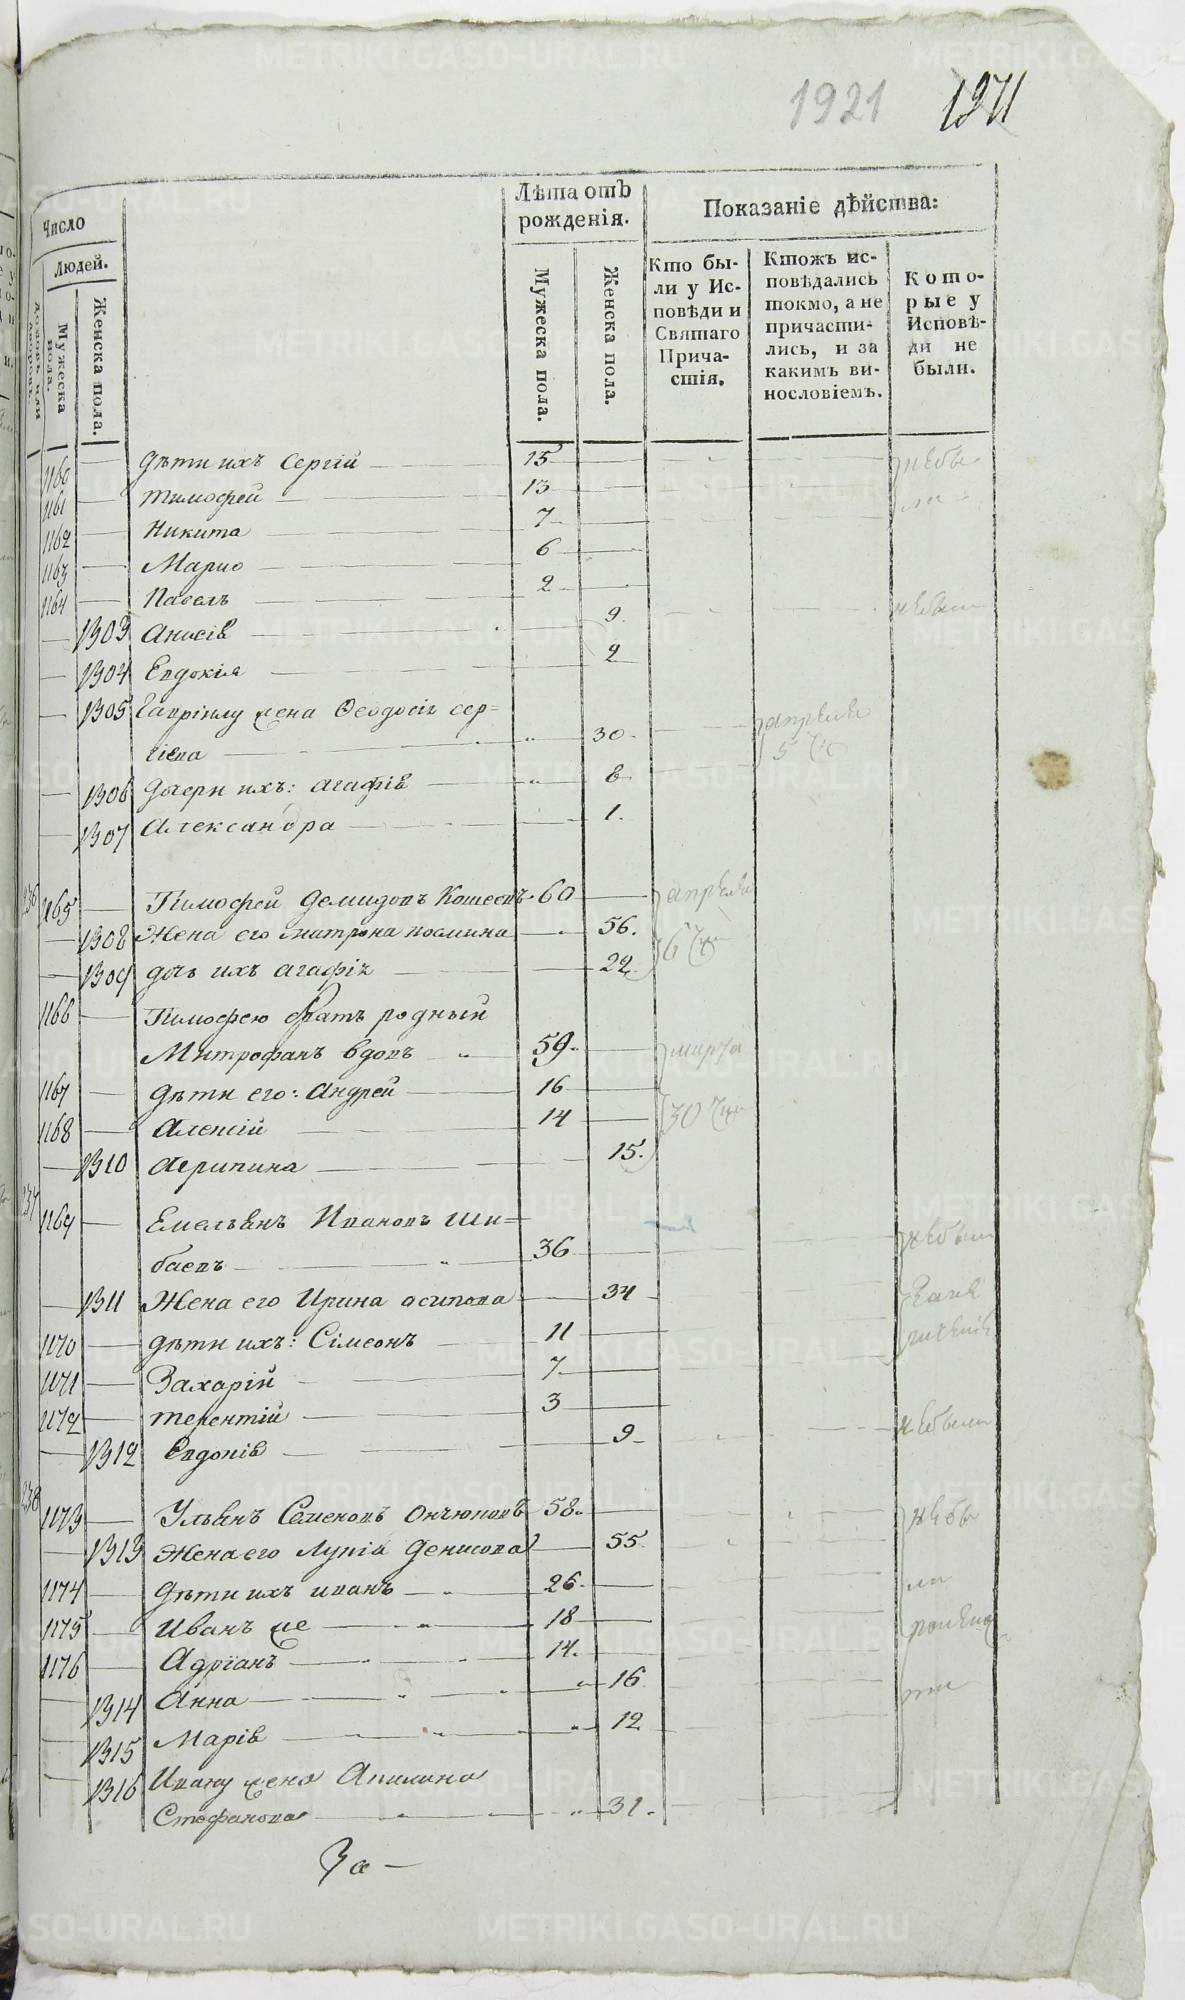 1921 1971
Число
Людей.
Домовъ или дворовъ.
Мужеска пола.
Женска пола.
Лѣта отъ рожденія.
Мужеска пола.
Женска пола.
Показаніе дѣйства:
Кто бы-
ли у Ис-
повѣди и
Святаго
Прича-
стія.
Ктожъ ис-
повѣдались
токмо, а не
причасти-
лись, и за
какимъ ви-
нословіемъ.
Кото-
рые у
Исповѣ-
ди не
были.
1160 — дѣти ихъ Сергій — 15 — небы
1161 — тимофей — 13 — ли
1162 — Никита — 7 —
1163 — Марко — 6 —
1164 — Павелъ — 2 —
— 1303 Анисія — 9 небыли
— 1304 Евдокія — 2
— 1305 Гавріилу жена Ѳеодосія сер=
гіева — 30 апреля 5 чис
— 1306 дочери ихъ: агафія — 8
— 1307 Александра — 1.
236 1165 — Тимофей Демидовъ 60 — апреля
— 1308 Жена его матрона козмина — 56. 6 чи
— 1309 дочь ихъ агафія — 22
1166 — Тимофею братъ родный
Митрофанъ вдовъ — 59 — марта
1167 — дѣти его: Андрей — 16 —
1168 — Алексій — 14 — 30 чи
— 1310 Агрипина — 15.
237 1169 — Емельянъ Ивановъ Ши=
баевъ — 36 — небыли
— 1311 Жена его Ирина осипова — 34
1170 — дѣти ихъ: Сімеонъ — 11 —
1171 — Захарій — 7 —
1172 — терентій — 3 —
— 1312 Евдокія — 9 небыли
238 1173 — Ульянъ Семеновъ 58 — небы
— 1313 Жена его Лукія Денисова — 55 ли
1174 — Дѣти ихъ иванъ — 26 —
1175 — Иванъ же — 18 —
1176 — Адріанъ — 14. —
— 1314 Анна — 16
— 1315 Марія — 12
— 1316 Ивану жена Акилина
Стефанова — 31.
За —
METRIKI.GASO-URAL.RU